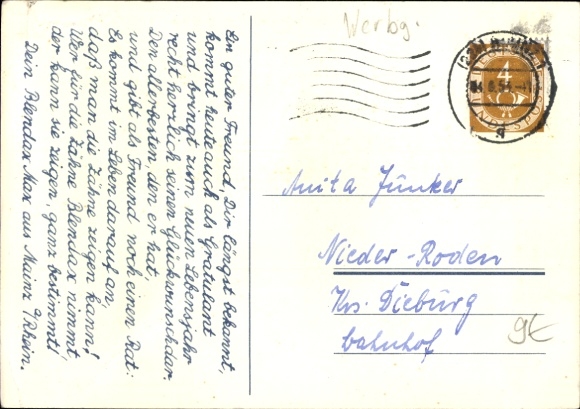 Ein guter Freund, Dir längst bekannt,
kommt heute auch als Gratulant
und bringt zum neuen Lebensjahr
recht herzlich seinen Glückwunsch dar.
Den allerbesten, den er hat,
und gibt als Freund noch einen Rat:
Es kommt im Leben darauf an,
daß man die Zähne zeigen kann!
Wer für die Zähne Blendax nimmt,
der kann sie zeigen, ganz bestimmt!
Dein Blendax Max aus Mainz/Rhein.
Werbg.
4
Anita Junker
Nieder-Roden
Krs. Dieburg
Bahnhof
9€